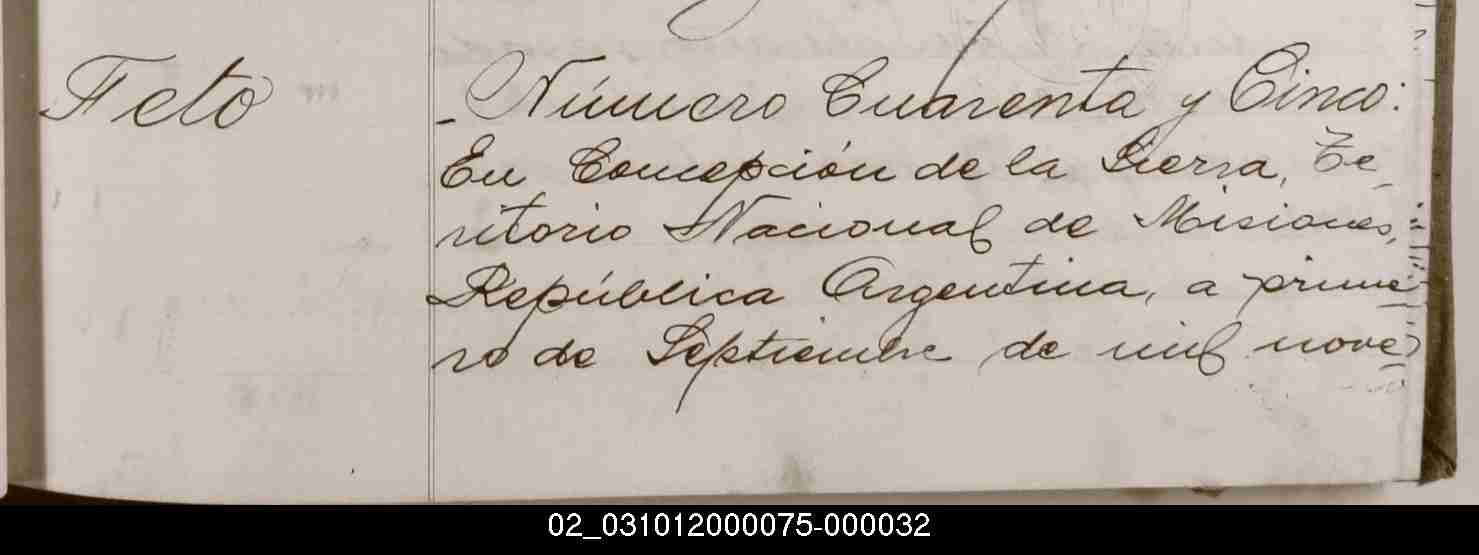 Feto
- Número Cuarenta y Cinco:
En Concepción de la Sierra, Te-
ritorio Nacional de Misiones,
República Argentina, a prime
ro de Septiembre de mil nove
02_031012000075-000032